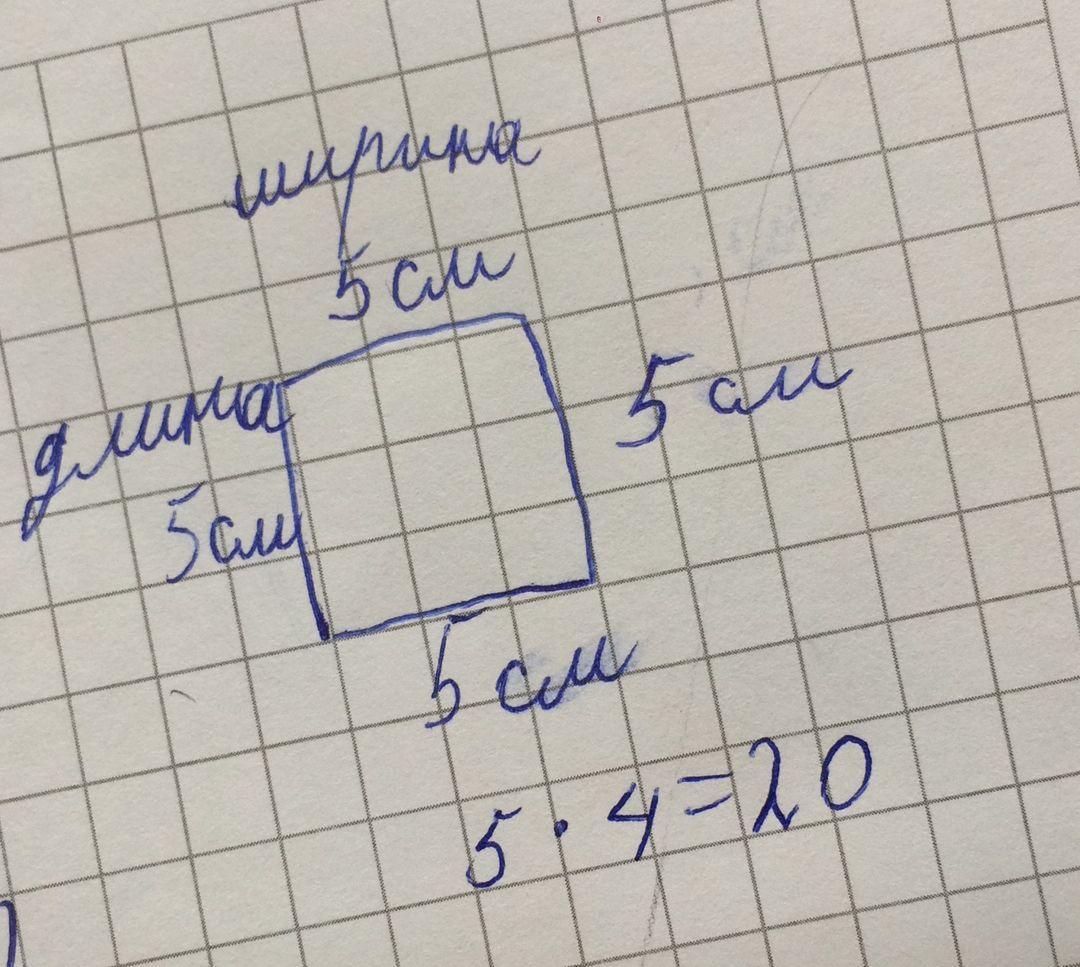 ширина
5 см
длина
5 см
5 см
5 см
5 · 4 = 20